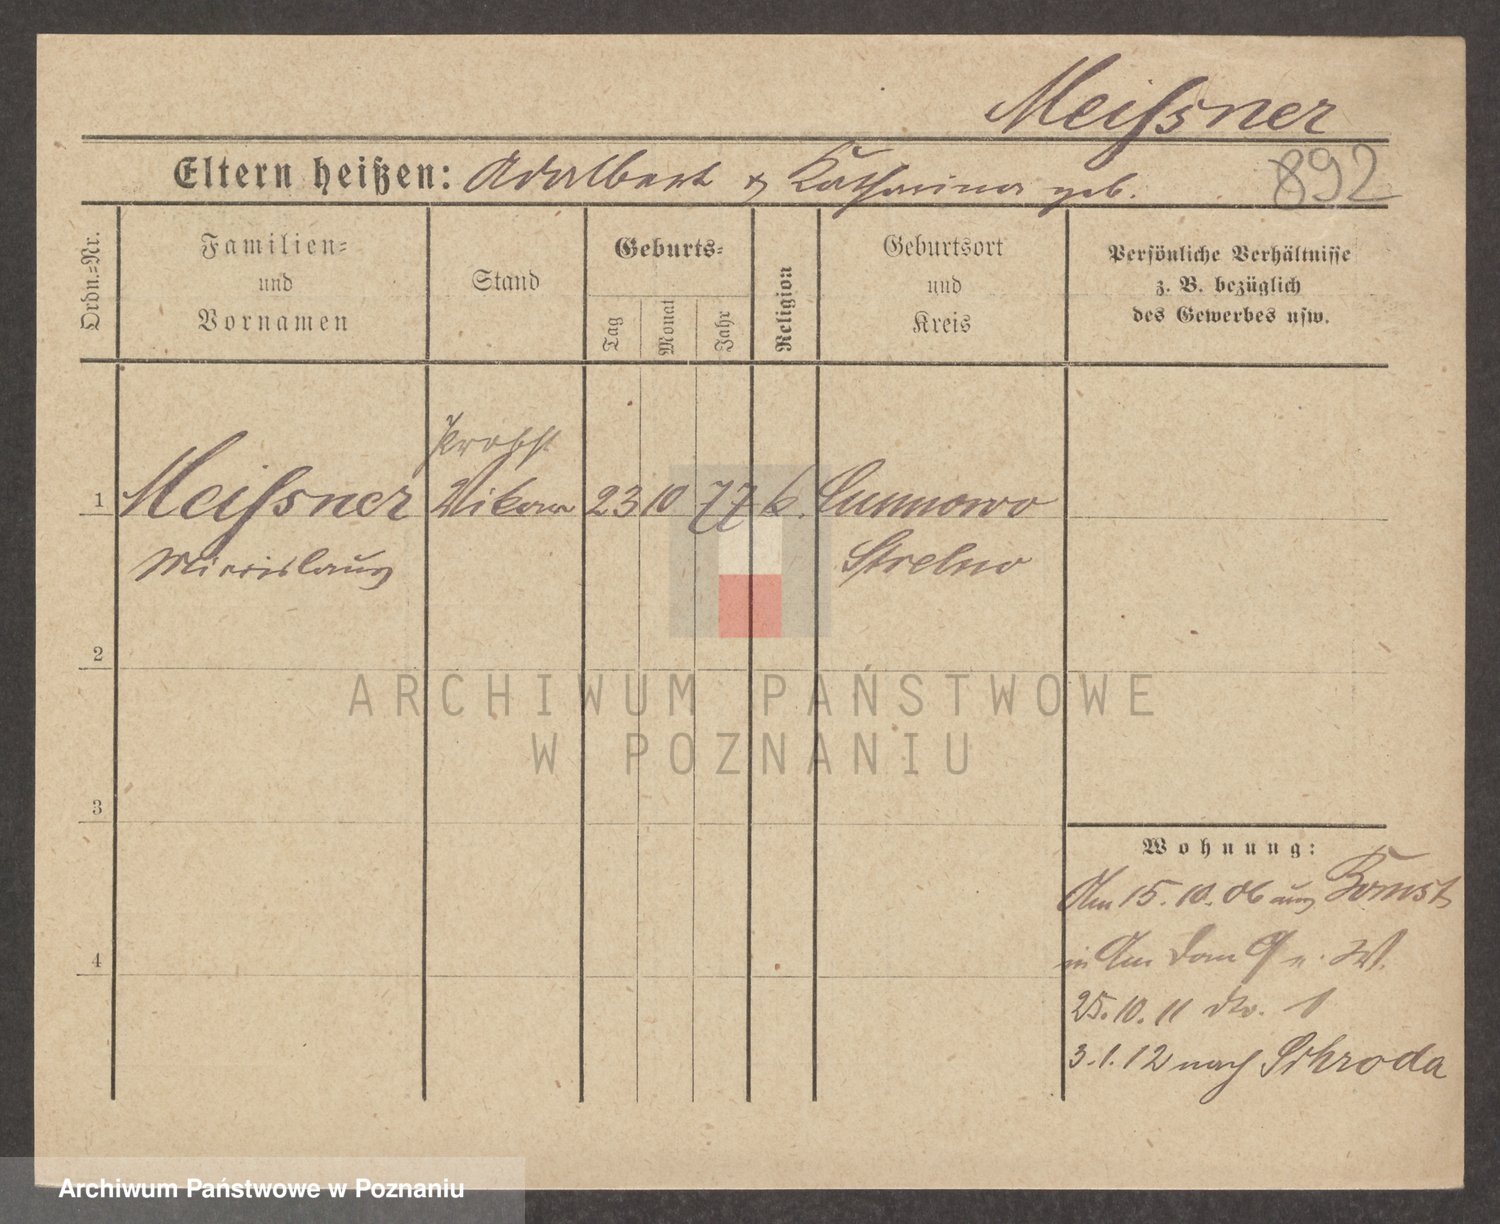 Meißner
892
Eltern heißen: Adalbert & Katharina geb.
Ordn.=Nr.
Familien=
und
Vornamen
Stand
Geburts=
Tag
Monat
Jahr
Religion
Geburtsort
und
Kreis
Persönliche Verhältnisse
z. B. bezüglich
des Gewerbes usw.
Probst
1 Meißner Vikar 23 10 77 k.
Strelno
2
ARCHIWUM PAŃSTWOWE
W POZNANIU
3
Wohnung:
Am 15.10.06 aus Bomst
in Am Dom 9
4
25.10.11 dto. 1
3.1.12 nach Schroda
Archiwum Państwowe w Poznaniu